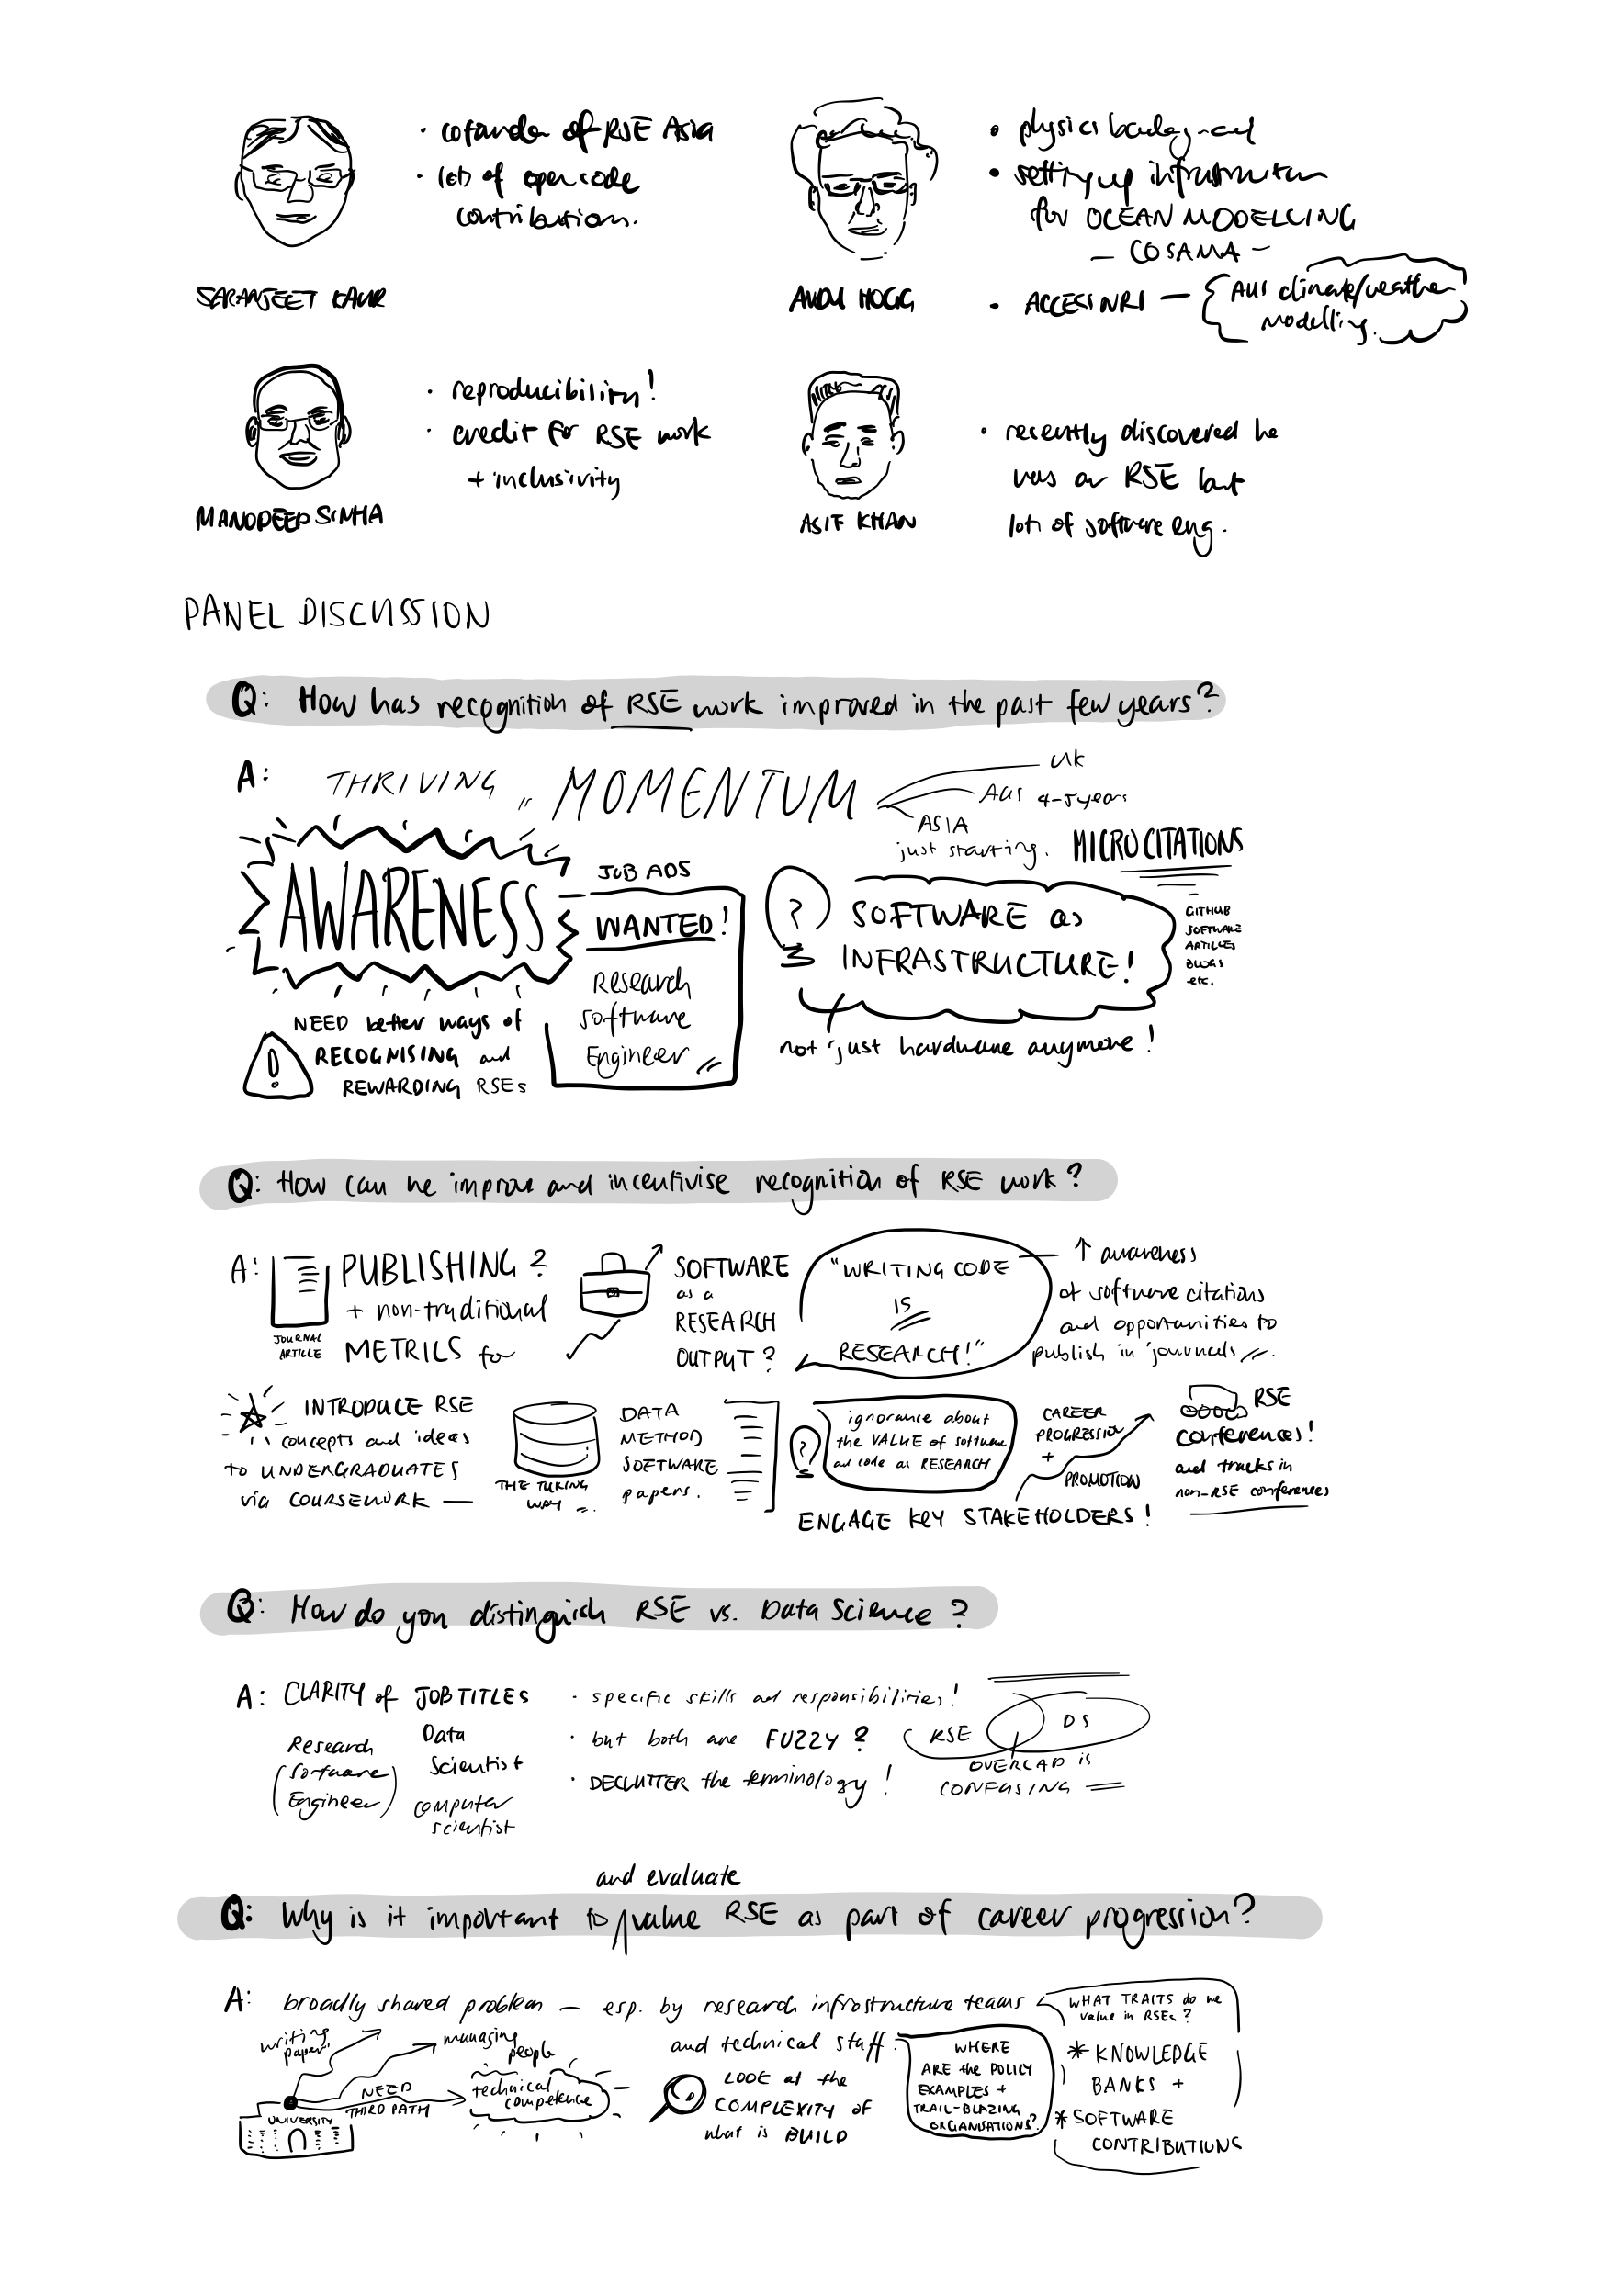 · cofounder of RSE Asia
· lots of open code
contributions.
SARANJEET KAUR
· physics background
· setting up infrastructure
for OCEAN MODELLING
— COSAMA —
· ACCESS NRI — AUS climate/weather
modelling.
ANDY HOGG
· reproducibility!
· credit for RSE work
+ inclusivity
MANODEEP SINHA
· recently discovered he
was an RSE but
lots of software eng.
ASIF KHAN
PANEL DISCUSSION
Q: How has recognition of RSE work improved in the past few years?
A: THRIVING MOMENTUM
UK
AUS 4-5 years
ASIA
just starting.
AWARENESS
NEED better ways of
RECOGNISING and
REWARDING RSEs
!
JOB ADS
WANTED!
Research
Software
Engineer
?
SOFTWARE as
INFRASTRUCTURE!
not just hardware anymore!
MICROCITATIONS
GITHUB
SOFTWARE
ARTICLES
BLOGS
etc.
Q: How can we improve and incentivise recognition of RSE work?
A: PUBLISHING?
+ non-traditional
METRICS for
JOURNAL
ARTICLE
SOFTWARE
as a
RESEARCH
OUTPUT?
"WRITING CODE
IS
RESEARCH!"
↑ awareness
of software citations
and opportunities to
publish in journals
INTRODUCE RSE
concepts and ideas
to UNDERGRADUATES
via COURSEWORK —
THE TURING
WAY
DATA
METHOD
SOFTWARE
papers.
?
ignorance about
the VALUE of software
and code as RESEARCH
ENGAGE KEY STAKEHOLDERS!
CAREER
PROGRESSION
+
PROMOTION
RSE
conferences!
and tracks in
non-RSE conferences
Q: How do you distinguish RSE vs. Data Science?
A: CLARITY of JOB TITLES
Research
Software
Engineer
Data
Scientist
computer
scientist
· specific skills and responsibilities!
· but both are FUZZY?
· DECLUTTER the terminology!
RSE
DS
OVERLAP is
CONFUSING
and evaluate
Q: Why is it important to value RSE as part of career progression?
A: broadly shared problem — esp. by research infrastructure teams
and technical staff.
writing
papers
managing
people
NEED
THIRD PATH
technical
competence
UNIVERSITY
LOOK at the
COMPLEXITY of
what is BUILD
WHERE
ARE the POLICY
EXAMPLES +
TRAIL-BLAZING
ORGANISATIONS?
WHAT TRAITS do we
value in RSEs?
* KNOWLEDGE
BANKS +
* SOFTWARE
CONTRIBUTIONS